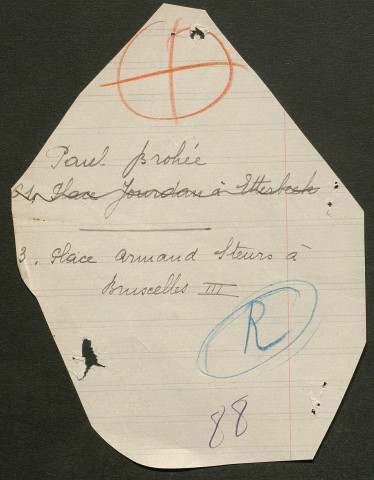 Paul Brohée
51, Place Jourdan à Etterbeek
3, Place Armand Steurs à
Bruxelles III
R
88